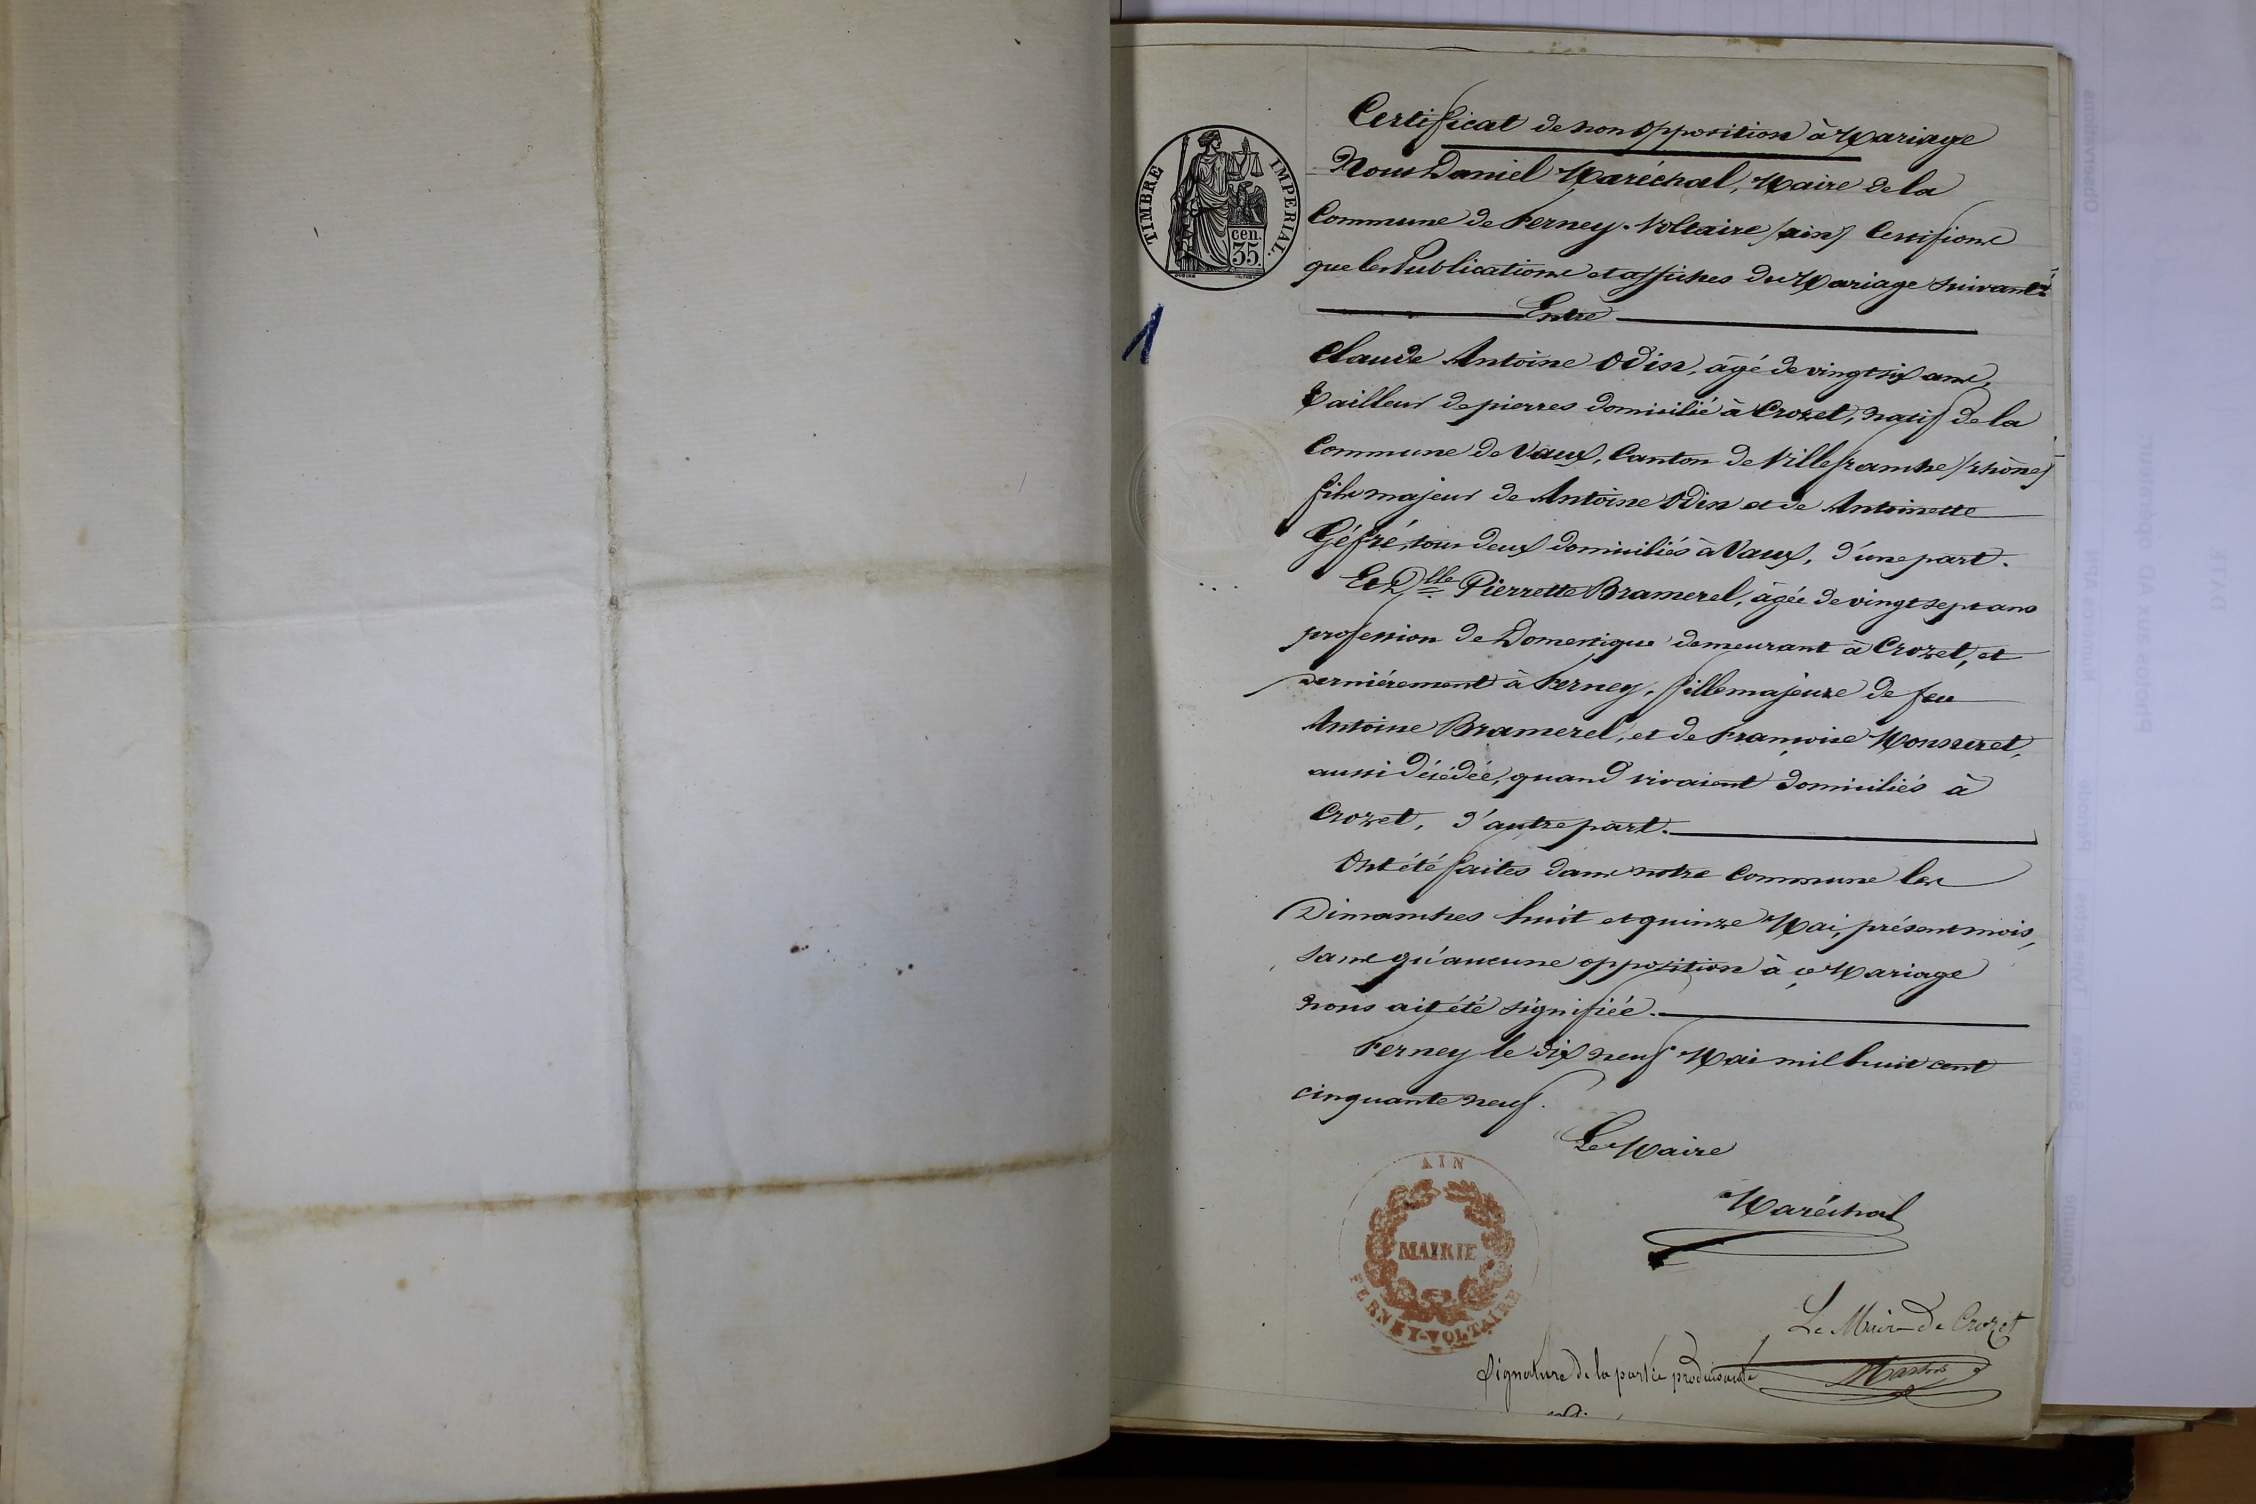 Certificat de non opposition à Mariage
Nous Daniel Maréchal, Maire de la
TIMBRE IMPERIAL.
cen.
35.
Commune de Ferney-Voltaire (ain) Certifions
que les Publications et affiches du Mariage suivant:
Entre
1
Claude Antoine Odin, âgé de vingt six ans,
tailleur de pierres domicilié à Crozet, natif de la
Commune de Vaux, Canton de Villefranche (rhône)
fils majeur de Antoine Odin et de Antoinette
Géfré, tous deux domiciliés à Vaux, d'une part.
Et Dlle Pierrette Bramerel, âgée de vingt sept ans
profession de Domestique demeurant à Crozet, et
dernièrement à Ferney, fille majeure de feu
Antoine Bramerel, et de Françoise
aussi décédée, quand vivaient domiciliés à
Crozet, d'autre part.
Ont été faites dans notre Commune les
Dimanches huit et quinze Mai, présent mois,
sans qu'aucune opposition à ce Mariage
nous ait été signifiée.
Ferney le dix neuf Mai mil huit cent
cinquante neuf.
Le Maire
Maréchal
AIN
MAIRIE
FERNEY-VOLTAIRE
Le Maire De Crozet
Signature de la partie produisante